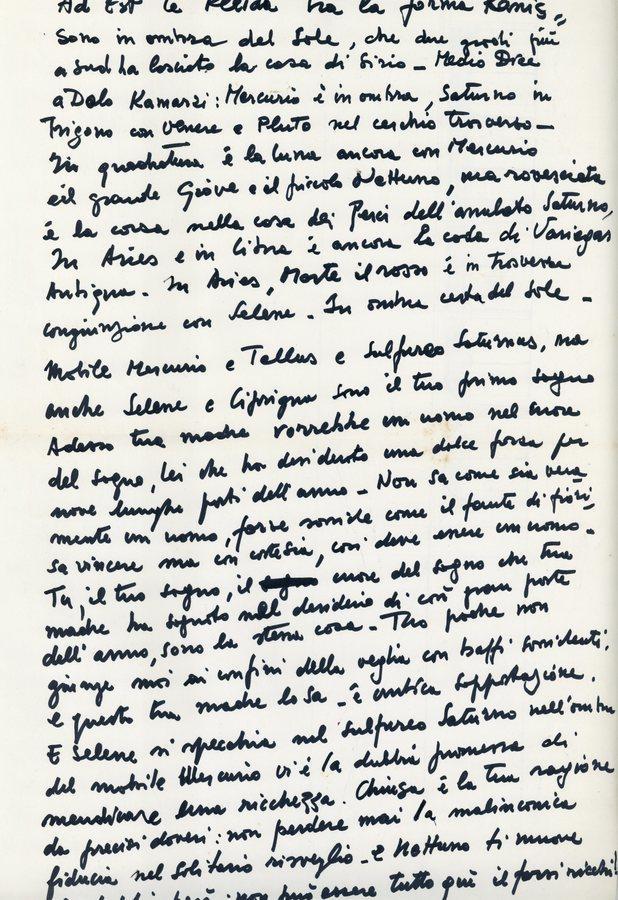 Ad Est le Pleida ha la forma Kanis =
sono in ombra del Sole, che due gradi più
a sud ha lasciato la casa di Sirio - Medio Dixe
a Dalo Kamarzi: Mercurio è in ombra, Saturno in
Trigono con Venere e Pluto nel cerchio trosverso -
In quadratura è la luna ancora con Mercurio
e il grande Giove e il piccolo Nettuno, ma rovesciata
è la corsa nella casa dei Pesci dell'anulato Saturno,
In Aries e in Libra è ancora la coda di Variegas
Antigua - In Aries, Marte il rosso è in trosversa
congiunzione con Selene - In ombra certa del Sole -
Mobile Mercurio e Tellus e sulfureo Saturnus, ma
anche Selene e Ciprigna sono il tuo primo sogno
Adesso tua madre vorrebbe un uomo nel cuore
del sogno, lei che ha desiderato una dolce forza per
nove lunghe parti dell'anno - Non sa come sia vera
mente un uomo, forse sorride come il fante di fiori
sa vincere ma con cortesia, così deve essere un uomo -
Tu, il tuo sogno, il cuore del sogno che tua
madre ha sognato nel desiderio di così gran parte
dell'anno, sono la stessa cosa - Tuo padre non
giunge mai ai confini della veglia con baffi sorridenti,
e questo tua madre lo sa - è antica sopportazione.
E Selene si specchia nel sulfureo Saturno nell'ombra
del mobile Mercurio vi è la dubbia promessa di
mendicare una ricchezza. Chiusa è la tua ragione
da precisi doveri: non perdere mai la malinconica
fiducia nel solitario risveglio - E Nettuno ti muove
però: non può essere tutto qui il farsi